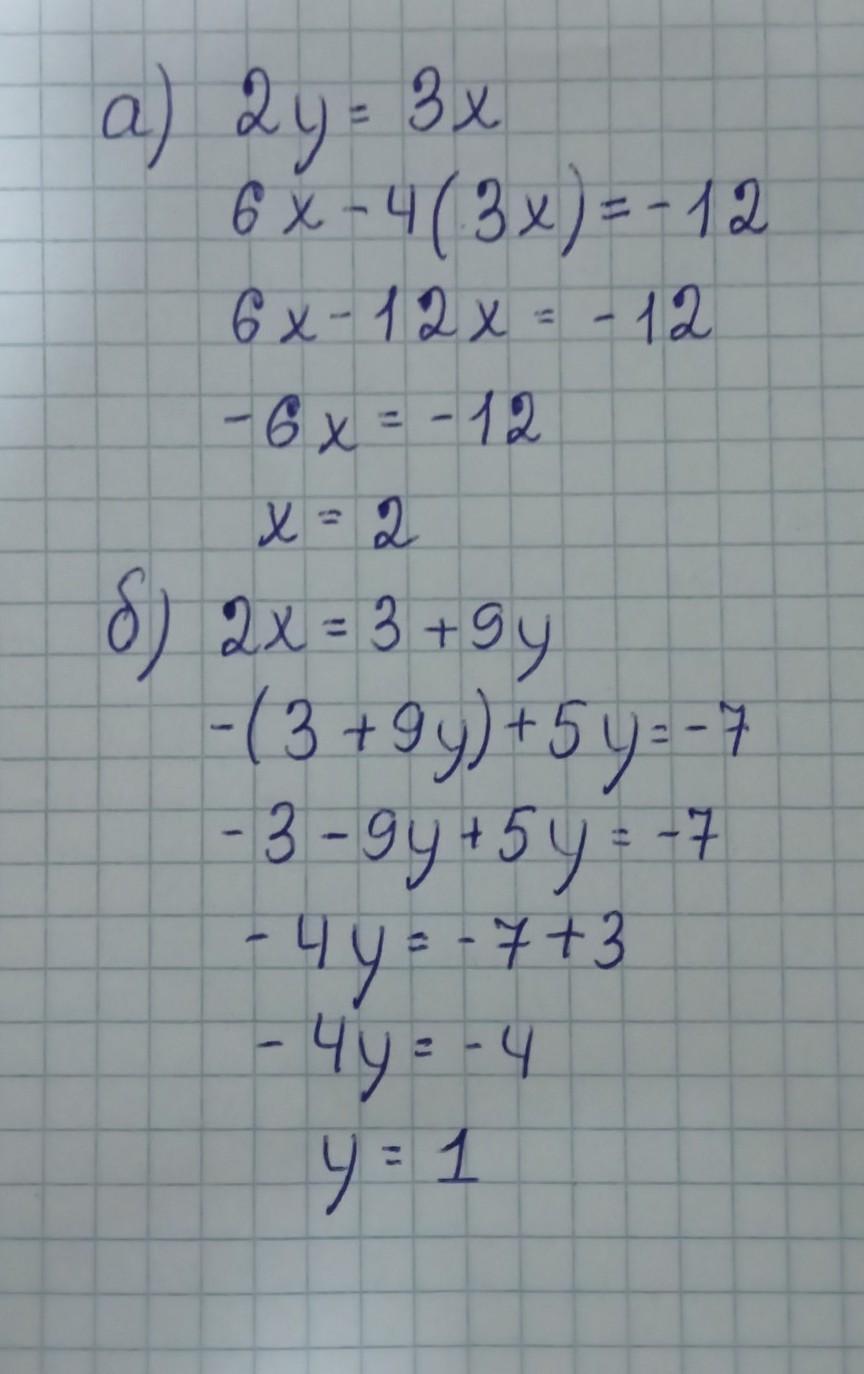 а) 2y = 3x
6x - 4(3x) = -12
6x - 12x = -12
-6x = -12
x = 2
б) 2x = 3 + 9y
-(3 + 9y) + 5y = -7
-3 - 9y + 5y = -7
-4y = -7 + 3
-4y = -4
y = 1